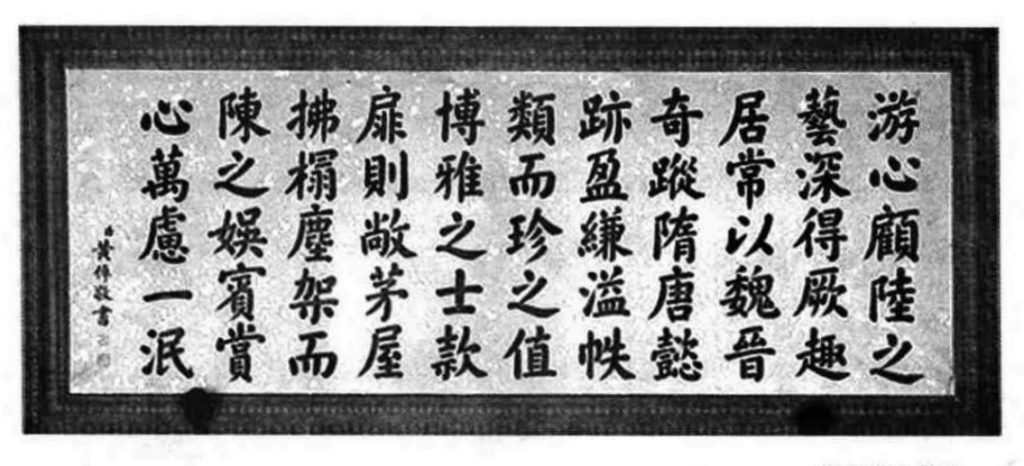 游心顧陸之
藝深得厥趣
居常以魏晉
奇蹤隋唐懿
跡盈縑溢帙
類而珍之值
博雅之士款
扉則敞茅屋
拂榻塵架而
陳之娛賓賞
心萬慮一泯
敬書